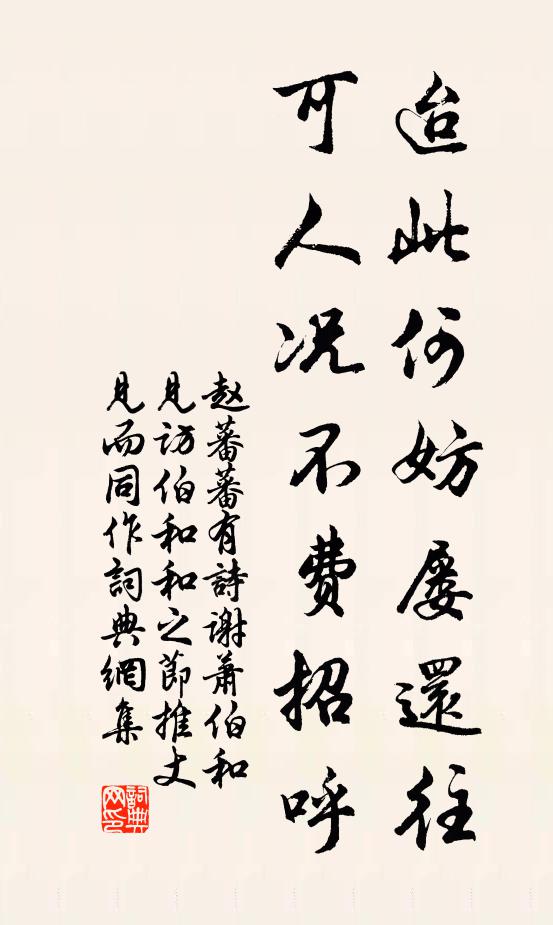 迨此何妨屡還往
可人况不费招呼
赵蕃蕃有詩谢萧伯和
見访伯和和之節推丈
見而同作詞典網集
詞典网印